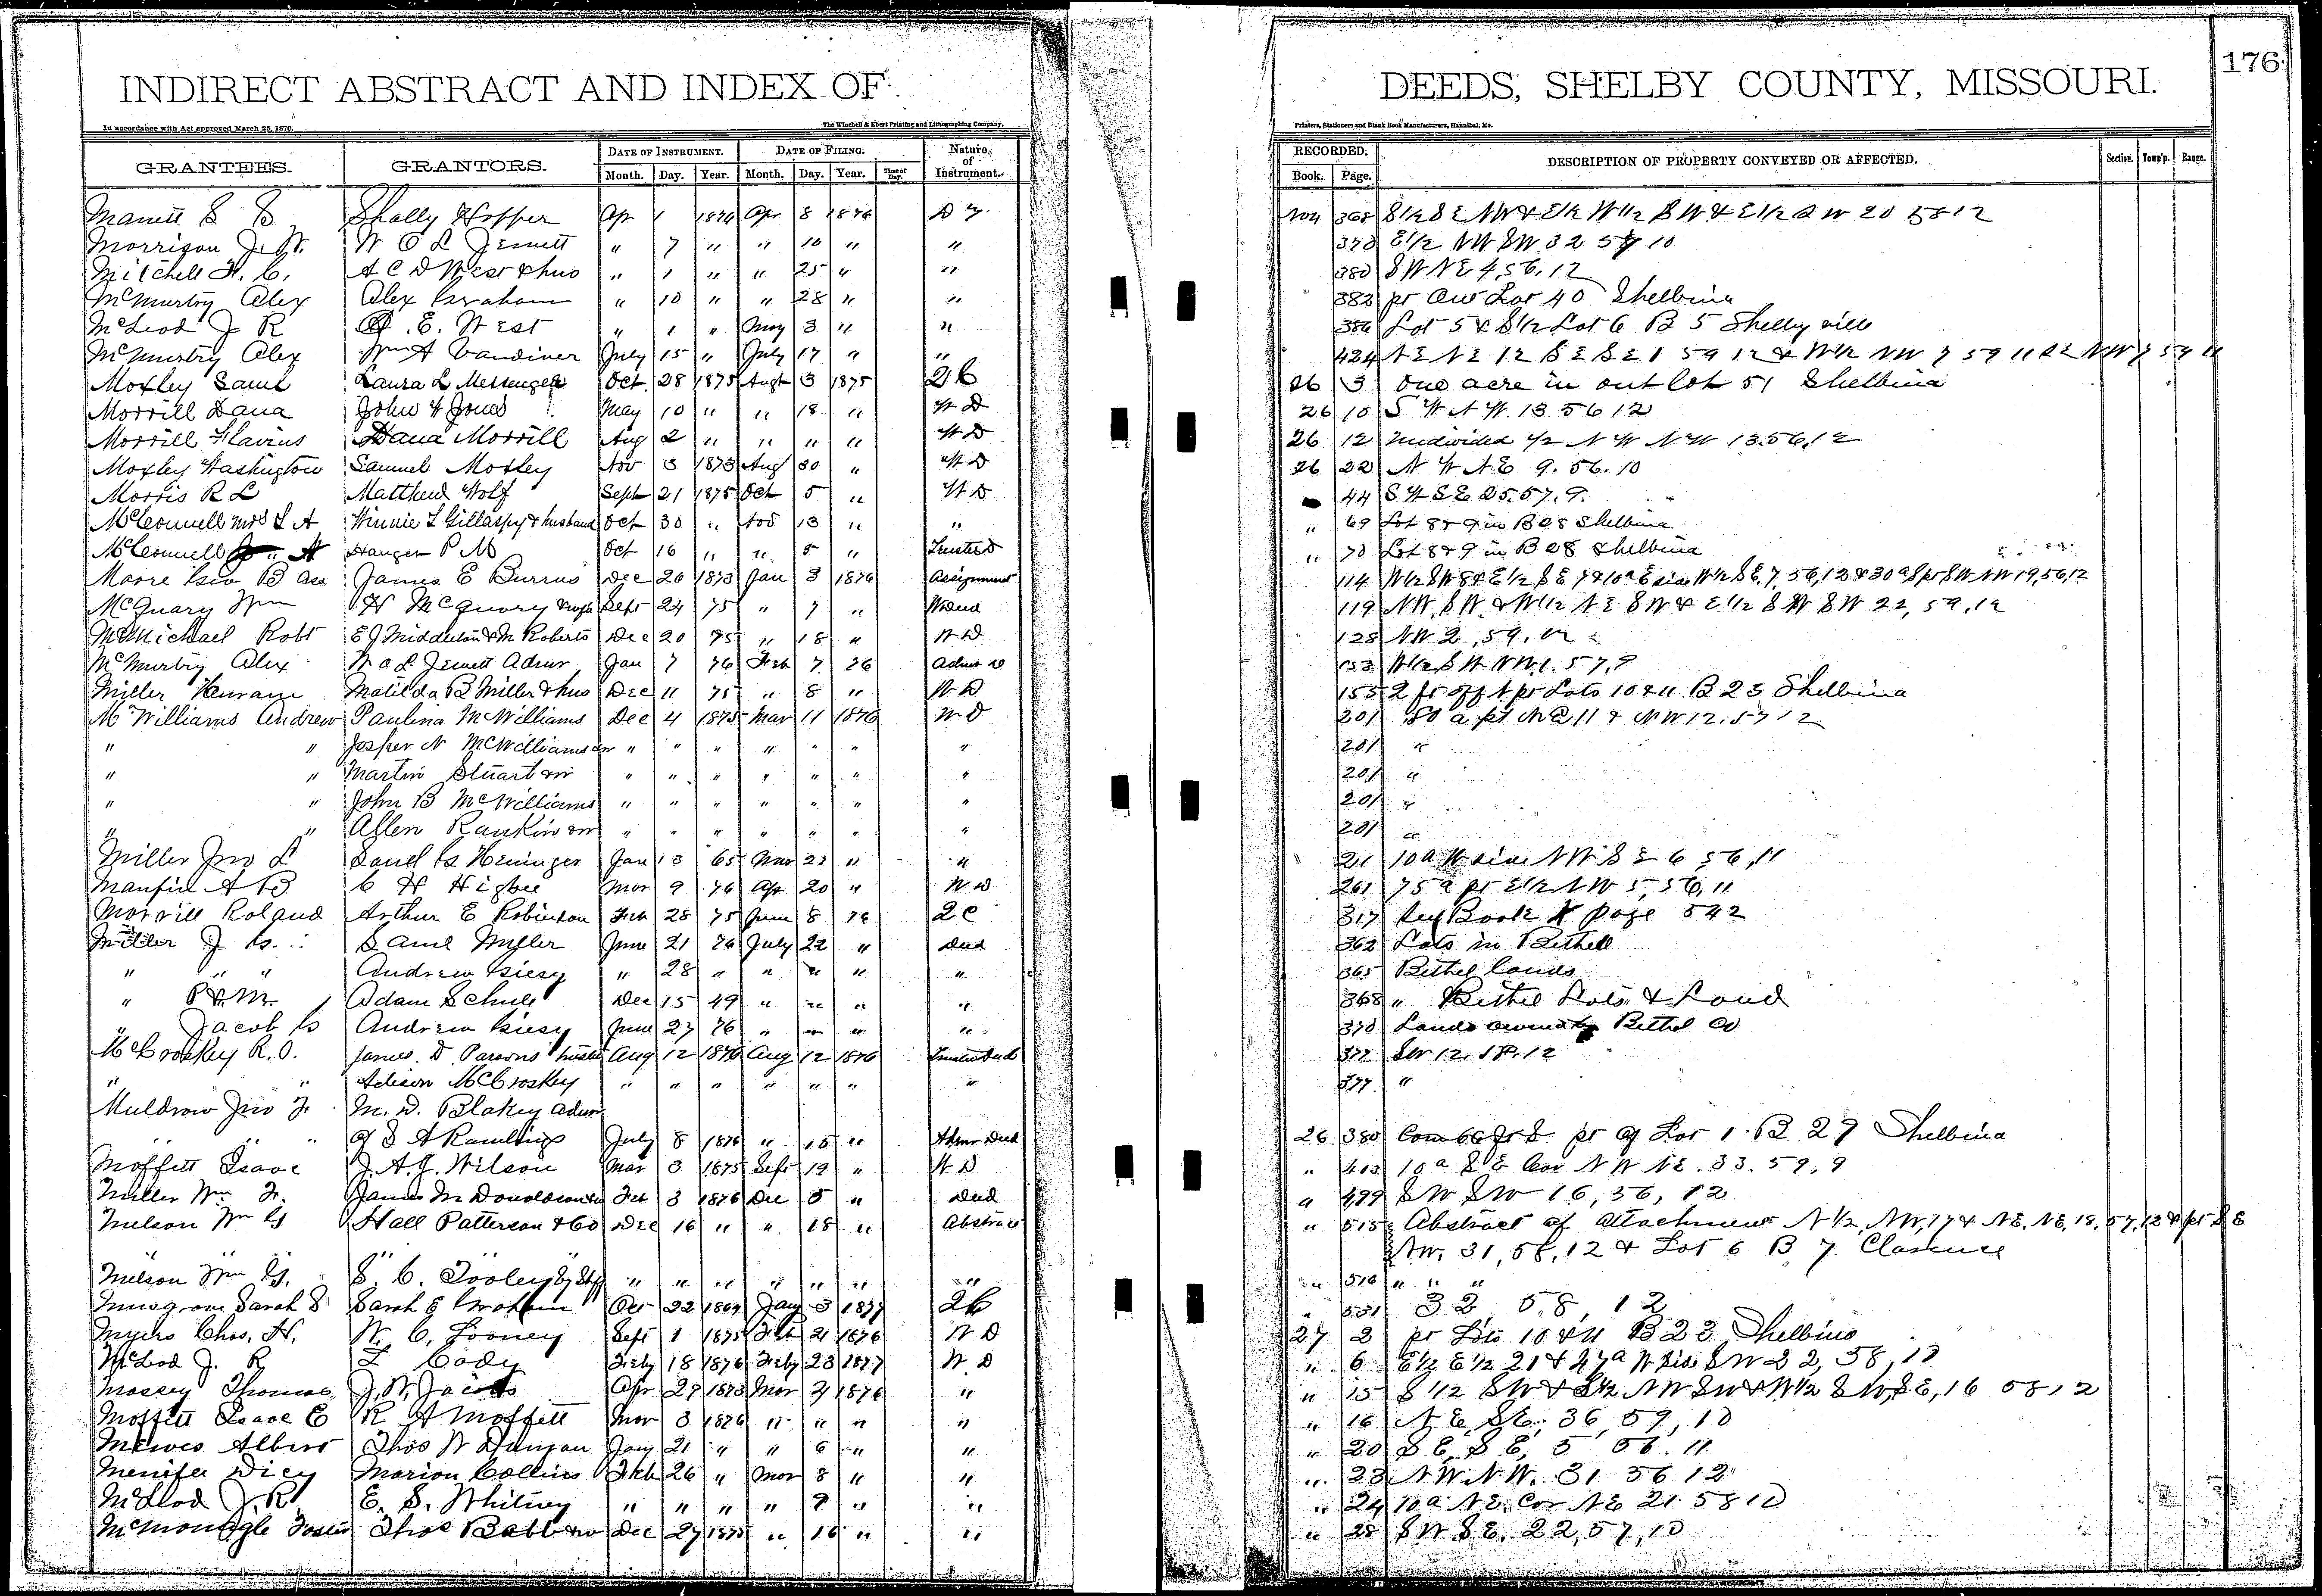 176
INDIRECT ABSTRACT AND INDEX OF DEEDS, SHELBY COUNTY, MISSOURI.
In accordance with Act approved March 25, 1870. The Winchell & Ebert Printing and Lithographing Company, Printers, Stationers and Blank Book Manufacturers, Hannibal, Mo.
GRANTEES. GRANTORS. DATE OF INSTRUMENT. DATE OF FILING. Nature of Instrument. RECORDED. DESCRIPTION OF PROPERTY CONVEYED OR AFFECTED. Section. Town'p. Range.
Month. Day. Year. Month. Day. Year. Time of Day. Book. Page.
Shelly Hopper Apr 1 1876 Apr 8 1876 368 S1/2 S E NW & E1/2 W1/2 S W & E1/2 S W 20 58 12
Morrison J. W. W O L Jewett " 7 " " 10 " " 370 E1/2 NW SW 32 57 10
Mitchell H. C. A C D West & hus " 1 " " 25 " " 380 S W N E 4, 56, 12
McMurtry Alex Alex Graham " 10 " " 28 " " 382 pr Out Lot 40 Shelbina
McLeod J R E. West " 1 " May 3 " " 386 Lot 5 & S1/2 Lot 6 B 5 Shelbyville
McMurtry Alex Wm A Vandiver July 15 " July 17 " " 424 N E N E 12 S E S E 1 59 12 & W1/2 NW 7 59 11 S E NW 7 59 11
Moxley Saml Laura L Messenger Oct. 28 1875 Augt 3 1875 2C 26 3 One acre in out lot 51 Shelbina
Morrill Dana John F Jones May 10 " " 18 " W D 26 10 S W N W. 13 56 12
Morrill Flavius Dana Morrill Aug 2 " " " " W D 26 12 undivided 1/2 N W N W 13. 56. 12
Moxley Washington Samuel Moxley Nov 3 1873 Aug 30 " W D 26 22 N W N E 9. 56. 10
Morris R L Matthew Wolf Sept 21 1875 Oct 5 " W D 44 S W S E 25. 57. 9.
McConnell Mrs L A Winnie L Gillaspy & husband Oct 30 " Nov 13 " " " 69 Lot 8 & 9 in B 28 Shelbina
McConnell Hanger P M Oct 16 " " 5 " Trustee D " 70 Lot 8 & 9 in B 28 Shelbina
Moore Geo B James E Burrus Dec 26 1873 Jan 3 1876 Assignment 114 W1/2 SW 8 & E1/2 S E 7 & 10a E side W1/2 S E, 7, 56, 12 & 30a S pr SW NW 19, 56, 12
McQuary Wm H McQuary & wife Sept 24 75 " 7 " W Deed 119 NW, S W. & W1/2 N E SW & E1/2 S W SW 22, 59, 12
McMichael Robt E J Middleton & M Roberts Dec 20 75 " 18 " W D 128 NW 2, 59, 12
McMurtry Alex W O L Jewett Admr Jan 7 76 Feb 7 76 Admr D 153 W1/2 S W NW 1. 57, 9
Miller Matilda B Miller & hus Dec 11 75 " 8 " W D 155 2 ft off N pr Lots 10 & 11 B 23 Shelbina
McWilliams Andrew Paulina McWilliams Dec 4 1875 Mar 11 1876 W D 201 80 a pt N E 11 & N W 12. 57 12
" " Jasper N McWilliams " " " " " " " 201 "
" " Martin Stuart " " " " " " " 201 "
" " John B McWilliams " " " " " " " 201 "
" " Allen Rankin " " " " " " " 201 "
Miller Jno L Saml G Heninger Jan 13 65 Mar 23 " " 211 10a W side NW S E 6 56, 11
Manfin A B C H Higbee Mar 9 76 Apr 20 " W D 261 75a pr E1/2 NW 5, 56, 11
Morrill Roland Arthur E Robinson Feb 28 75 June 8 76 2C 317 See Book X page 542
Miller J G. Saml Miller June 21 76 July 22 " Deed 362 Lots in Bethel
" " " Andrew Giesy " 28 " " " " " 365 Bethel lands
" P & M. Adam Schule Dec 15 49 " " " " 368 " Bethel Lots & Land
" Jacob G Andrew Giesy June 27 76 " " " " 370 Lands owned by Bethel Co
McCroskey R. O. James D Parsons Trustee Aug 12 1876 Aug 12 1876 Trustee Deed 377 SW 12. 58. 12
" " Adison McCroskey " " " " " " " 377 "
Muldrow Jno F. M. D. Blakey Admr
" " " of S A Rawlings July 8 1876 " 15 " Admr Deed 26 380 pr of Lot 1 B 29 Shelbina
Moffett Isaac J. A. J. Wilson Mar 3 1875 Sept 19 " W D " 403 10a S E Cor N W N E. 33. 59, 9
Miller Wm F. James M Donaldson Feb 3 1876 Dec 5 " Deed " 499 SW SW 16, 56, 12
Melson Wm G Hall Patterson & Co Dec 16 " " 18 " Abstract " 515 Abstract of attachment N1/2, NW, 17 & N E, N E, 18, 57, 12 & pt S E
NW. 31, 58, 12 & Lot 6 B 7 Clarence
Melson Wm G. S. C. Tooley " " " " " " " " 516 " " "
Musgrove Sarah S Sarah E Graham Oct 22 1864 Jany 3 1877 2C " 531 32, 58, 12
Myers Chas. H. W. C. Looney Sept 1 1875 Feb 21 1876 W D 27 2 pr Lots 10 & 11 B 23 Shelbina
McLeod J. R Z Cody Feby 18 1876 Feby 23 1877 W D " 6 E1/2 E1/2 21 & 47a W side S W 22, 58, 10
Massey Thomas J. W. Jacobs Apr 29 1873 Mar 1876 " " 15 S 1/2 SW & S1/2 NW SW & W1/2 S W, S E, 16 58 12
Moffett Isaac E R A Moffett Mar 3 1876 " " " " " 16 N E, S E, 36, 59, 10
Mewes Albert Thos W Dungan Jany 21 " " 6 " " " 20 S E, S E, 5 56. 11
Menifer Dicy Marion Collins Feb 26 " Mar 8 " " " 23 N W. N W. 31 56 12
McLeod J. R. E. S. Whitney " " " " 9 " " " 24 10a N E. Cor N E 21 58 10
McMonagle Foster Thos Babb Dec 27 1875 " 16 " " " 28 S W S E. 22, 57, 10